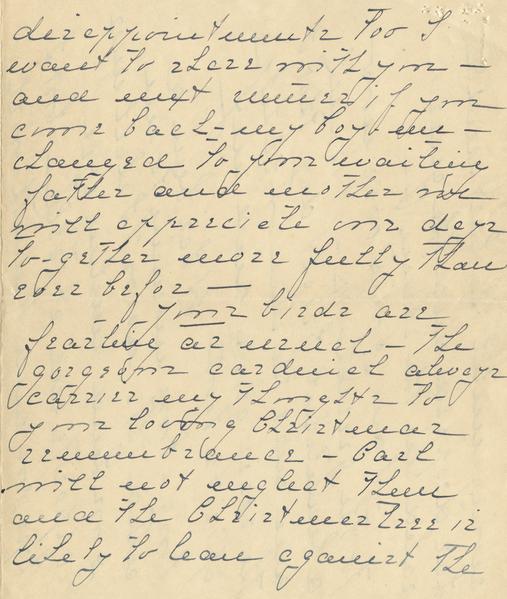 disappointments too I
want to share with you —
and next summer if you
come back - my boy - un-
changed to your waiting
father and mother we
will appreciate our days
to-gether more fully than
ever befor —
your birds are
feasting as usual - the
gorgeous cardinal always
carries my thoughts to
your loving Christmas
remembrance - Carl
will not neglect them
and the Christmas tree is
likely to lean against the